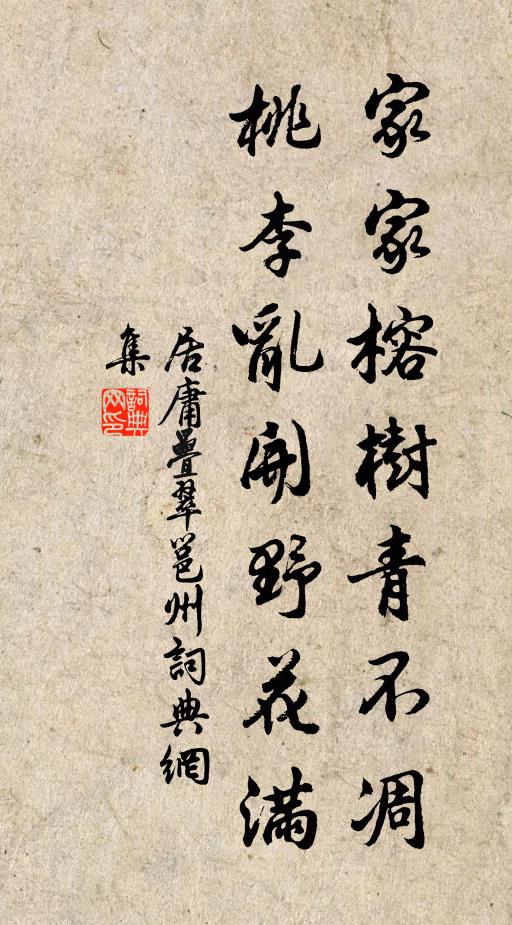 家家榕樹青不凋
桃李亂開野花滿
居庸疊翠邕州詞典網
集
詞典網印